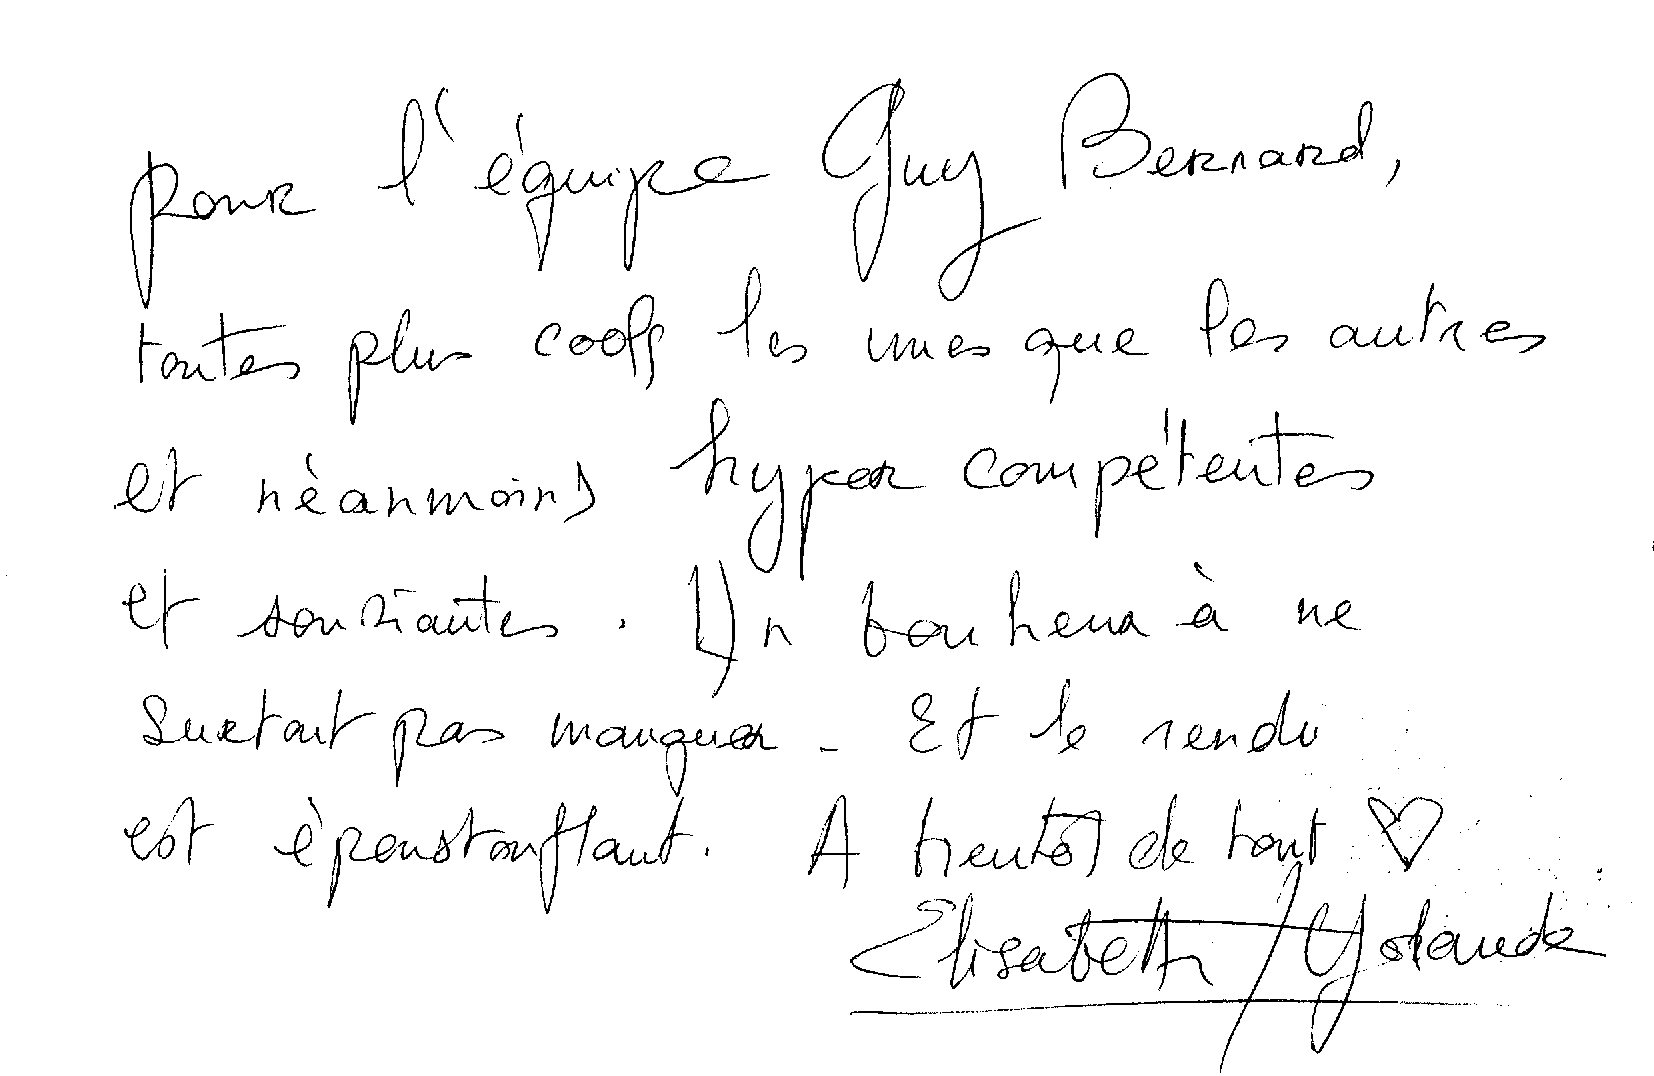 pour l'équipe Guy Bernard,
toutes plus cools les unes que les autres
et néanmoins hyper compétentes
et souriantes. Un bonheur à ne
surtout pas manquer - Et le rendu
est époustouflant. A bientôt de tout ♡
Elisabeth / Yolande